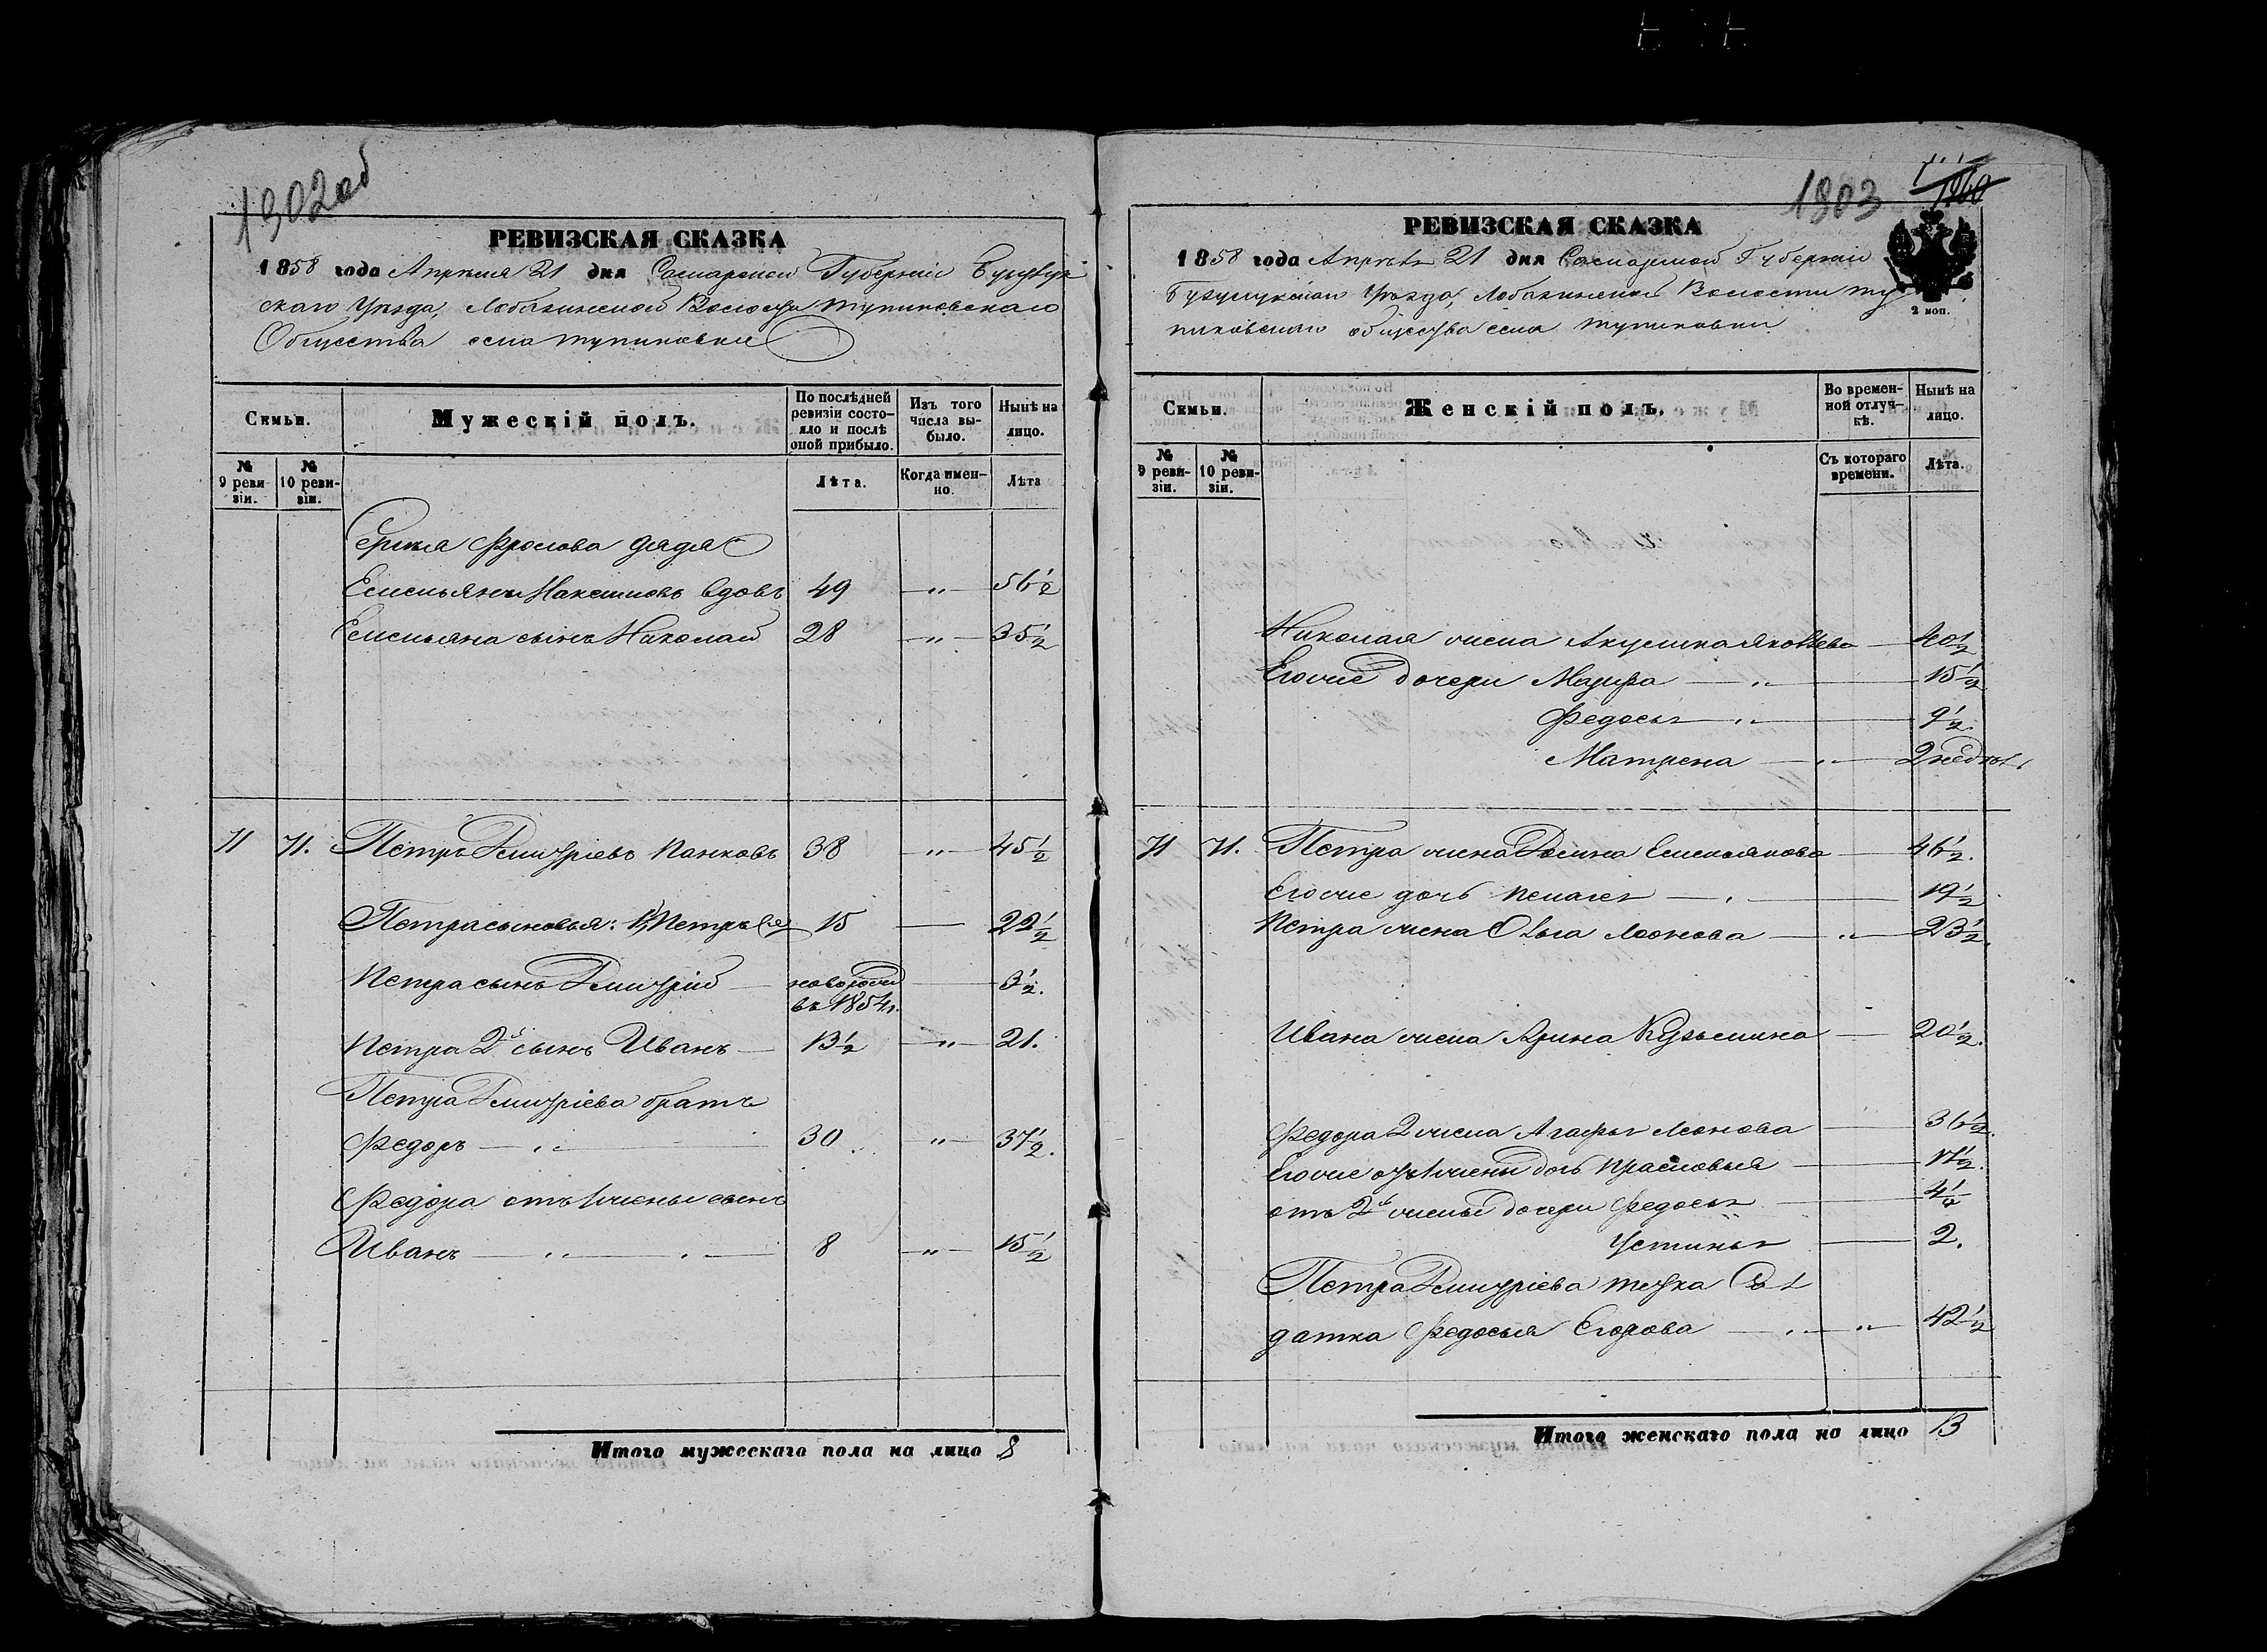 1302об
РЕВИЗСКАЯ СКАЗКА
1858 года Апреля 21 дня Самарской Губернии Бузулук
скаго Уезда, Лобазинской Волости Тупиковскаго
Общества села Тупиковки
Семьи.
Мужескій полъ.
По послѣдней ревизіи состояло и послѣ оной прибыло.
Изъ того числа выбыло.
Нынѣ на лицо.
№ 9 ревизіи.
№ 10 ревизіи.
Лѣта.
Когда именно.
Лѣта
Фролова дядя
Емельянъ Максимовъ вдовъ 49 „ 56½
Емельяна сынъ Николай 28 „ 35½
71 71. Петръ Дмитріевъ Панковъ 38 „ 45½
Петра сыновья: 1й Петръ 15 22½
Петра сынъ Дмитрій новорож
въ 1854г. 3½.
Петра 2й сынъ Иванъ 13½ „ 21.
Петра Дмитріева братъ
Федоръ „ 30 „ 37½.
Федора отъ 1 жены сынъ
Иванъ „ „ 8 „ 15½
Итого мужескаго пола на лицо 8
1303
1260
РЕВИЗСКАЯ СКАЗКА
1858 года Апреля 21 дня Самарской Губернии
Бузулукскаго Уезда, Лобазинской Волости Ту
пиковскаго общества села Тупиковки
2 коп.
Семьи.
Женскій полъ.
Во временной отлучкѣ.
Нынѣ на лицо.
№ 9 ревизіи.
№ 10 ревизіи.
Съ котораго времени.
Лѣта.
Николая жена Акулина Яковлева 40½
Его же дочери Мавра „ 15½
Федосья „ 9½.
Матрена „ 2 недели
71 71. Петра жена Домна Емельянова 46½.
Его же дочь Пелагея 19½
Петра жена Ольга Леонова „ 23½.
Ивана жена Арина Кузьмина 20½.
Федора 2 жена Агафья Леонова 36½.
Его же отъ 1 жены дочь Прасковья 17½.
отъ 2й жены дочери Федосья 4½
Устинья 2.
Петра Дмитріева тетка Сол
датка Федосья Егорова „ „ 42½
Итого женскаго пола на лицо 13